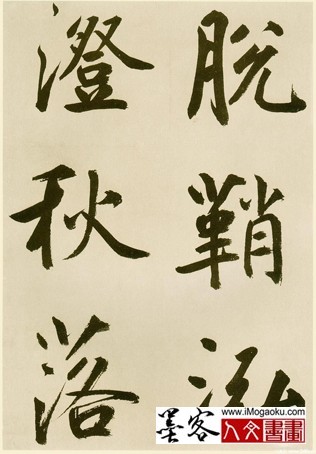 脱鞘泓
澄秋落
墨客
www.iMogaoku.com
人文書畫